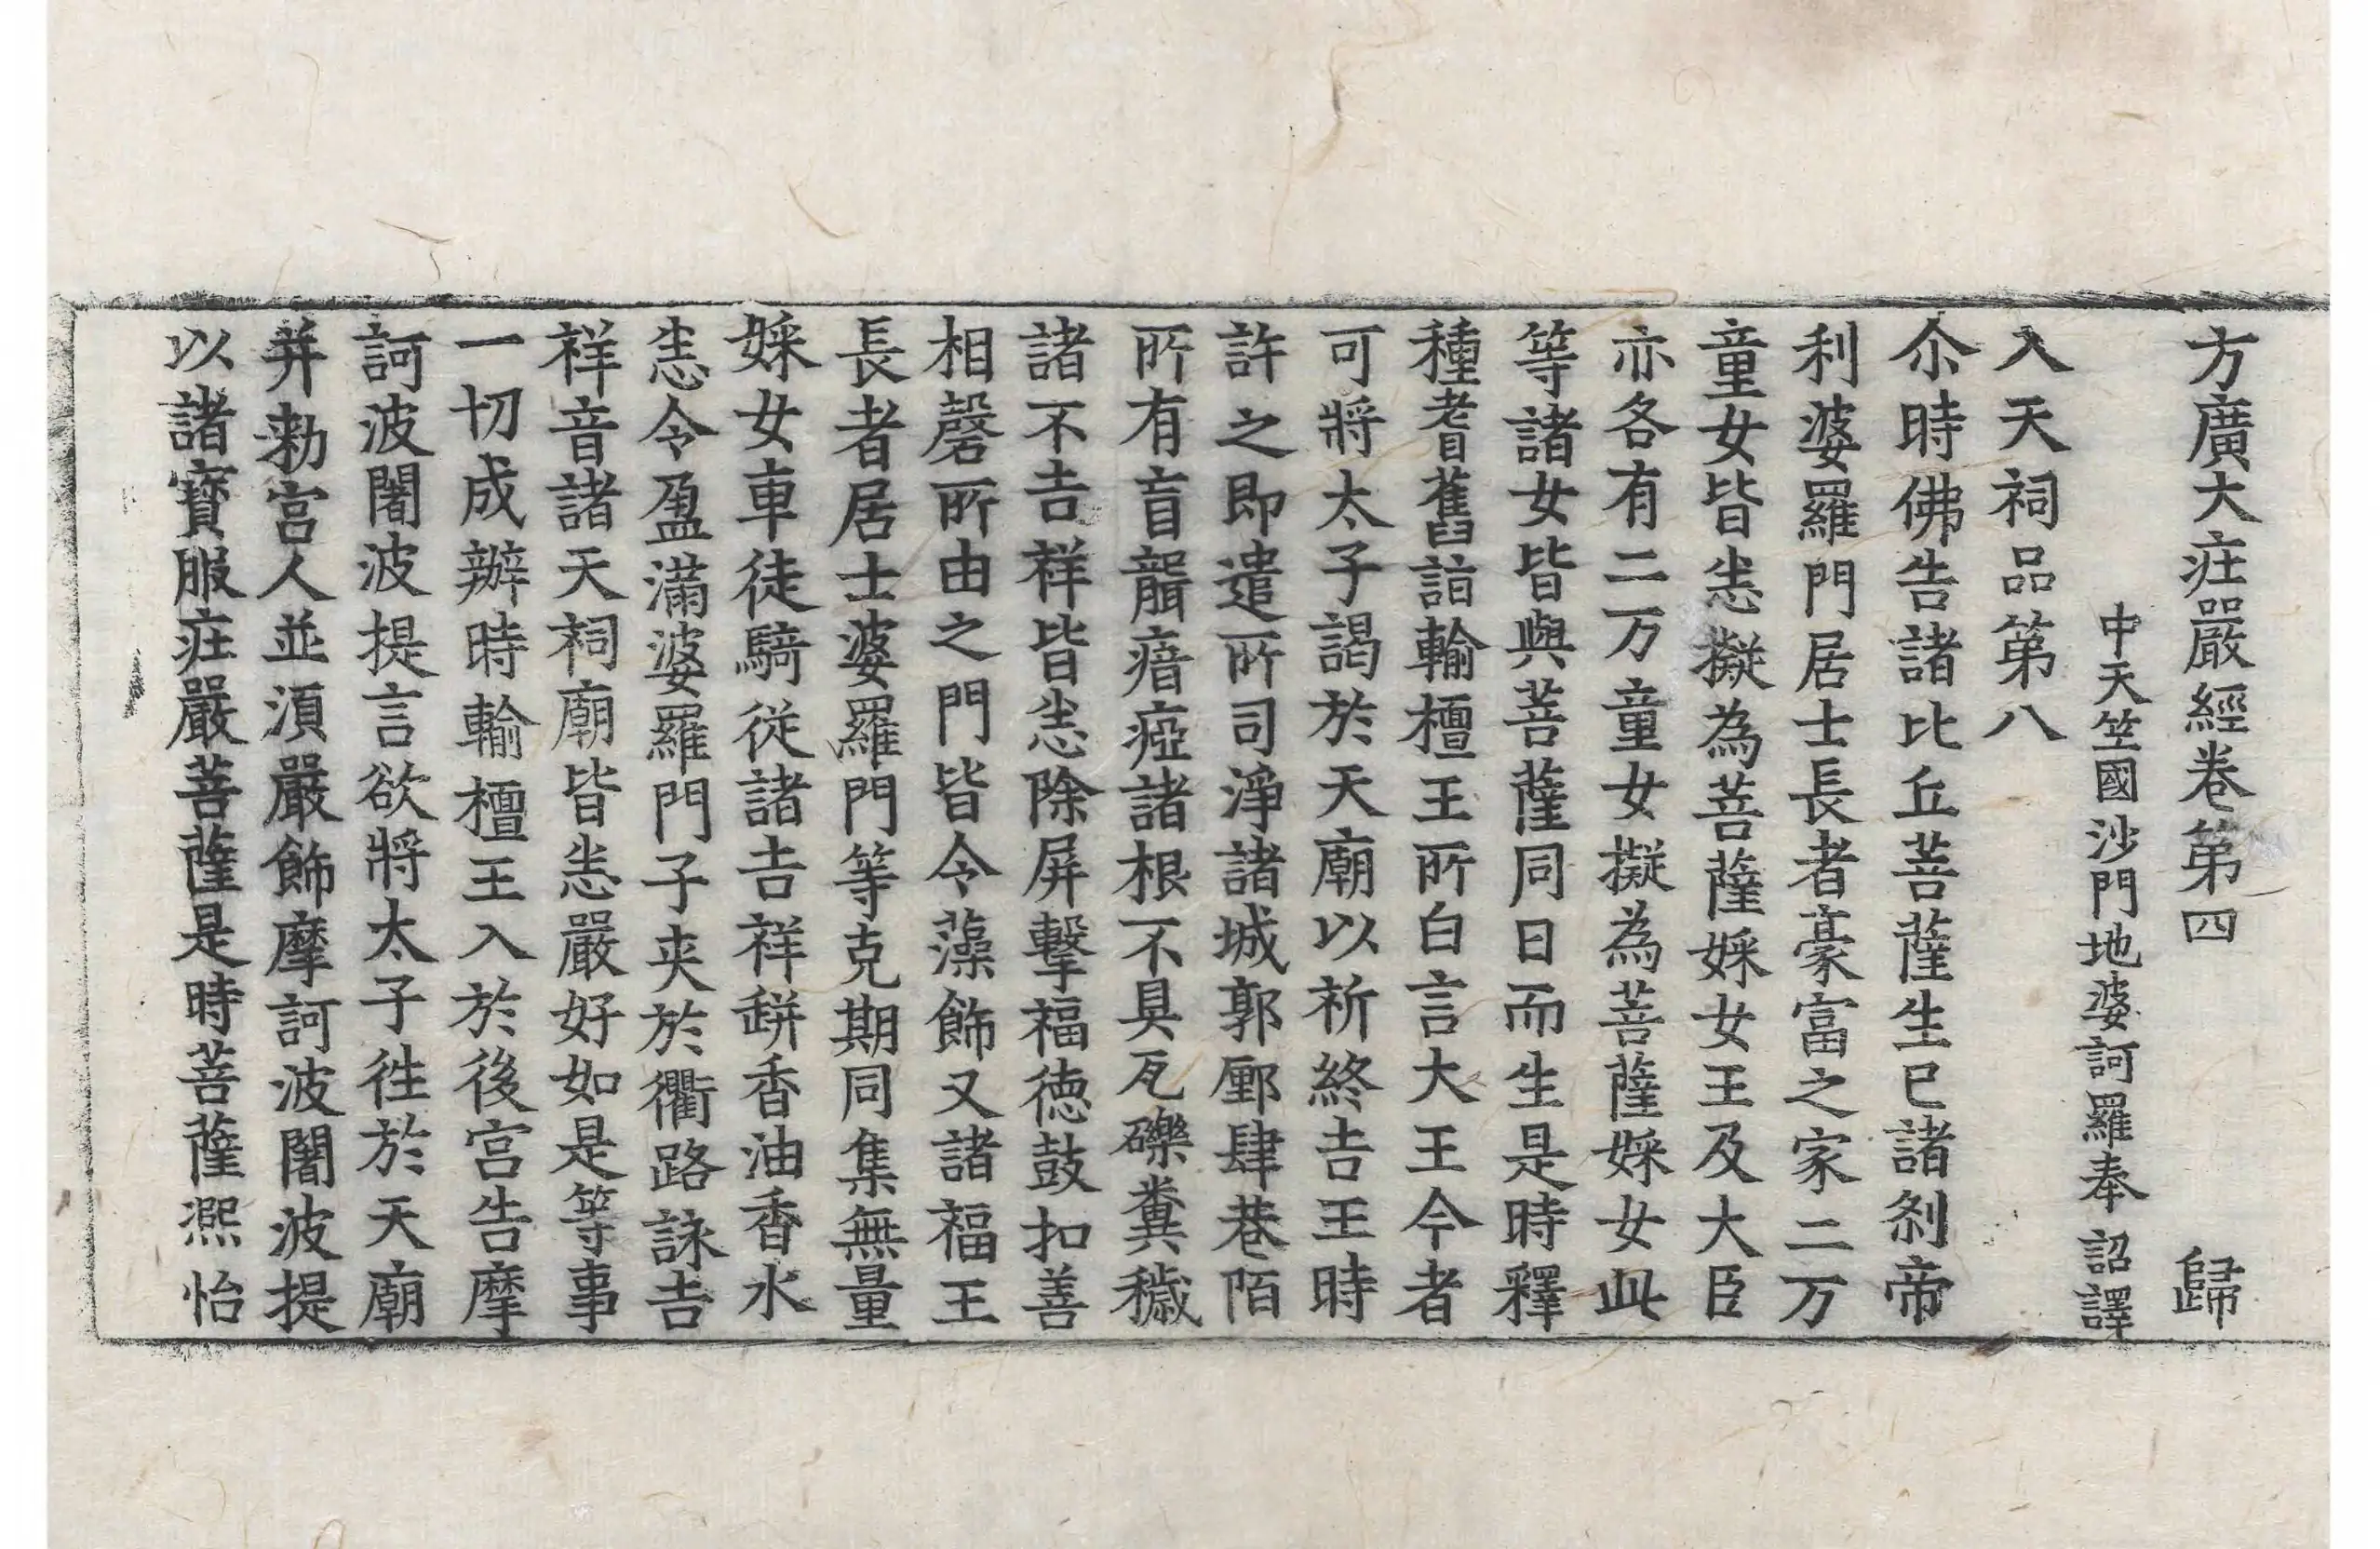 方廣大疰嚴經卷第四 歸
中天笁國沙門地婆訶羅奉 詔譯
入天祠品第八
尒時佛告諸比丘菩薩生已諸刹帝
利婆羅門居士長者豪富之家二万
童女皆恙擬為菩薩婇女王及大臣
亦各有二万童女擬為菩薩婇女此
等諸女皆與菩薩同日而生是時釋
種耆舊詣輸檀王所白言大王今者
可將太子謁於天廟以祈終吉王時
許之即遣所司淨諸城郭鄽肆巷陌
所有盲聾瘖瘂諸根不具瓦礫糞穢
諸不吉祥皆恙除屏擊福德鼓扣善
相磬所由之門皆令藻飾又諸福王
長者居士婆羅門等克期同集無量
婇女車徒騎從諸吉祥缾香油香水
恙令盈滿婆羅門子夾於衢路詠吉
祥音諸天祠廟皆恙嚴好如是等事
一切成辦時輸檀王入於後宮告摩
訶波闍波提言欲將太子徃於天廟
并勑宮人並湏嚴飾摩訶波闍波提
以諸寶服疰嚴菩薩是時菩薩熈怡